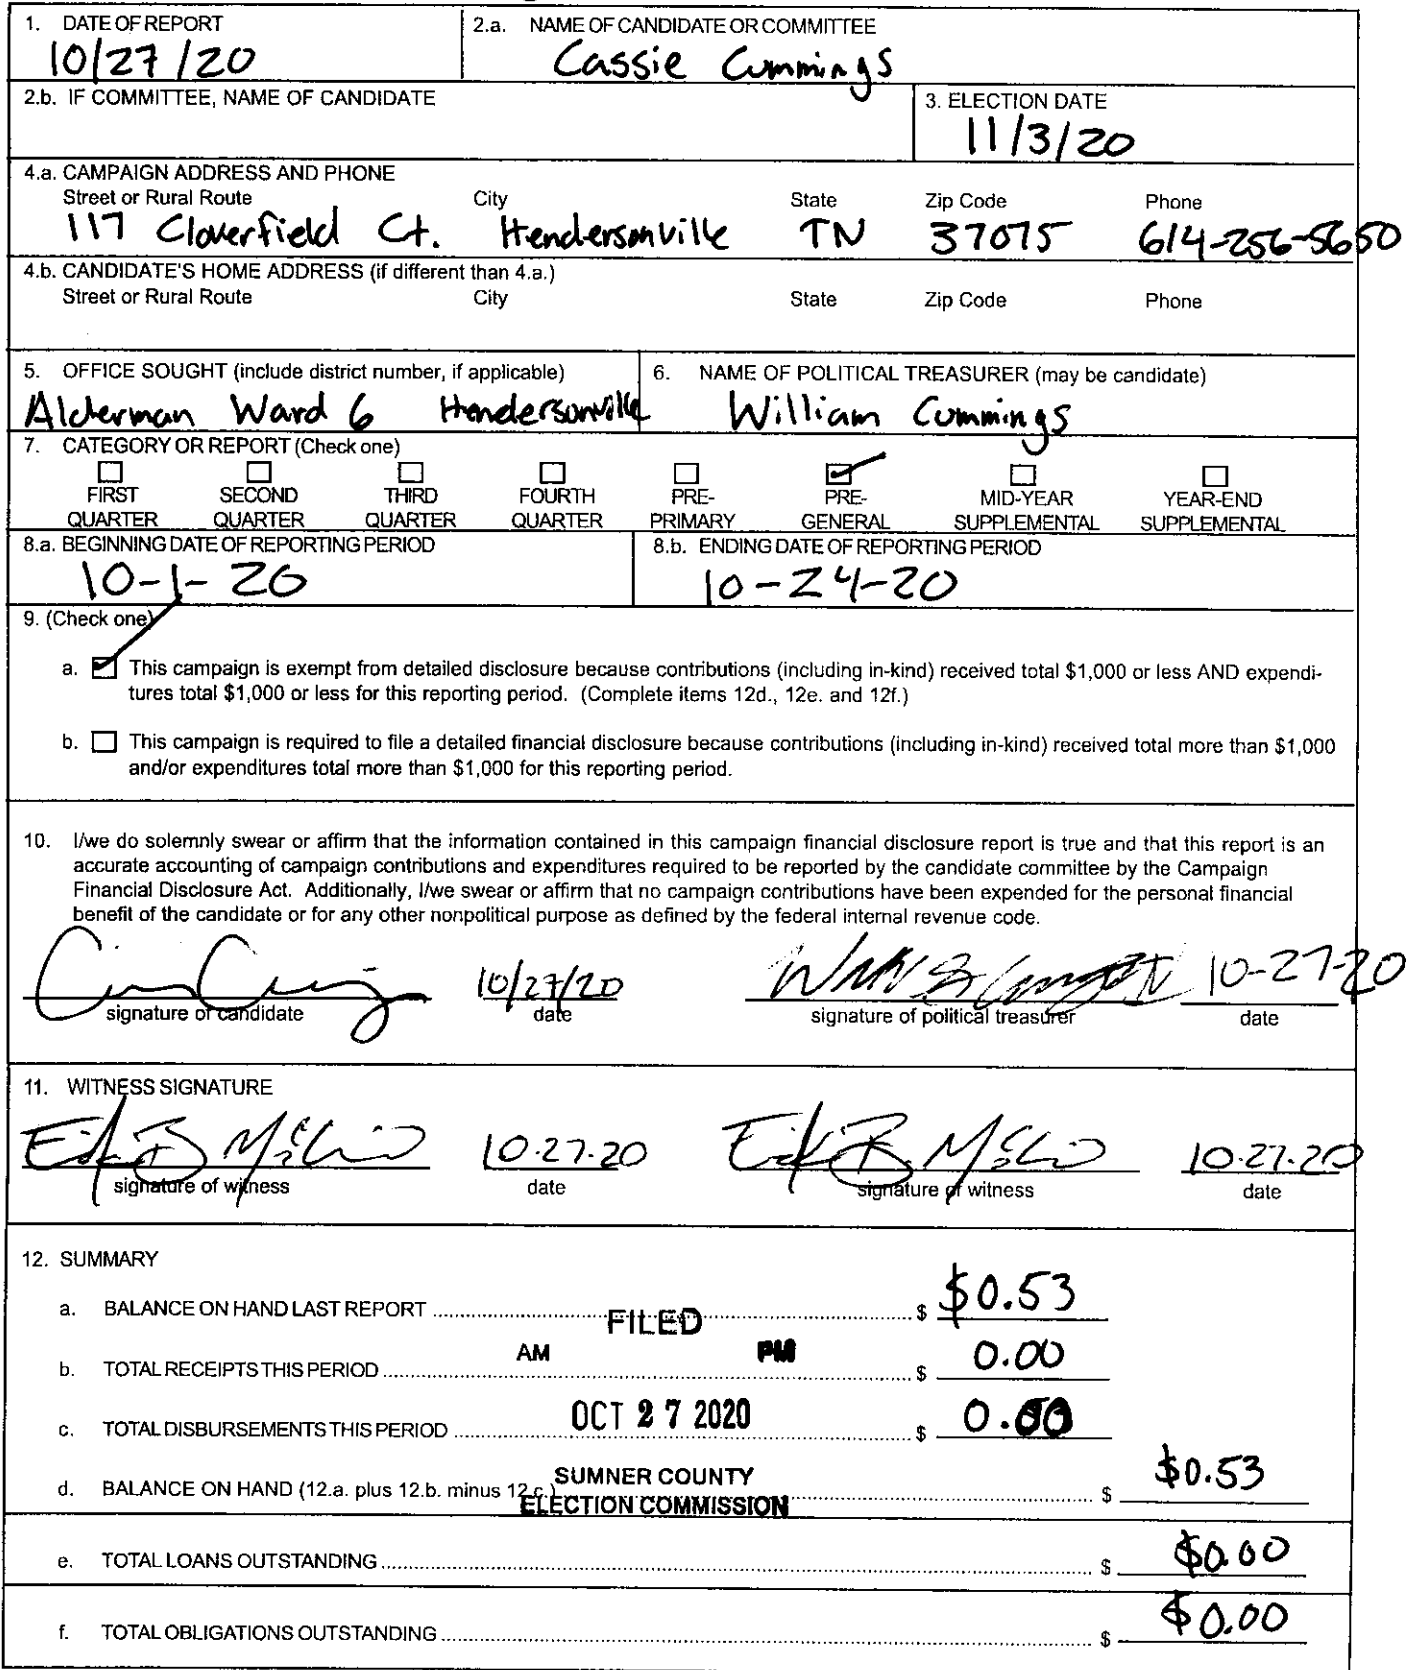 1. DATE OF REPORT
10/27/20
2.a. NAME OF CANDIDATE OR COMMITTEE
Cassie Cummings
2.b. IF COMMITTEE, NAME OF CANDIDATE
3. ELECTION DATE
11/3/20
4.a. CAMPAIGN ADDRESS AND PHONE
Street or Rural Route City State Zip Code Phone
117 Cloverfield Ct. Hendersonville TN 37075 614-256-5650
4.b. CANDIDATE'S HOME ADDRESS (if different than 4.a.)
Street or Rural Route City State Zip Code Phone
5. OFFICE SOUGHT (include district number, if applicable)
Alderman Ward 6 Hendersonville
6. NAME OF POLITICAL TREASURER (may be candidate)
William Cummings
7. CATEGORY OR REPORT (Check one)
FIRST SECOND THIRD FOURTH PRE- PRE- MID-YEAR YEAR-END
QUARTER QUARTER QUARTER QUARTER PRIMARY GENERAL SUPPLEMENTAL SUPPLEMENTAL
8.a. BEGINNING DATE OF REPORTING PERIOD
10-1-20
8.b. ENDING DATE OF REPORTING PERIOD
10-24-20
9. (Check one)
a. This campaign is exempt from detailed disclosure because contributions (including in-kind) received total $1,000 or less AND expendi-
tures total $1,000 or less for this reporting period. (Complete items 12d., 12e. and 12f.)
b. This campaign is required to file a detailed financial disclosure because contributions (including in-kind) received total more than $1,000
and/or expenditures total more than $1,000 for this reporting period.
10. I/we do solemnly swear or affirm that the information contained in this campaign financial disclosure report is true and that this report is an
accurate accounting of campaign contributions and expenditures required to be reported by the candidate committee by the Campaign
Financial Disclosure Act. Additionally, I/we swear or affirm that no campaign contributions have been expended for the personal financial
benefit of the candidate or for any other nonpolitical purpose as defined by the federal internal revenue code.
10/27/20 10-27-20
signature of candidate date signature of political treasurer date
11. WITNESS SIGNATURE
10.27.20 10.27.20
signature of witness date signature of witness date
12. SUMMARY
a. BALANCE ON HAND LAST REPORT $ $0.53
FILED
AM PM
b. TOTAL RECEIPTS THIS PERIOD $ 0.00
OCT 27 2020
c. TOTAL DISBURSEMENTS THIS PERIOD $ 0.00
SUMNER COUNTY
d. BALANCE ON HAND (12.a. plus 12.b. minus 12.c.) $ $0.53
ELECTION COMMISSION
e. TOTAL LOANS OUTSTANDING $ $0.00
f. TOTAL OBLIGATIONS OUTSTANDING $ $0.00